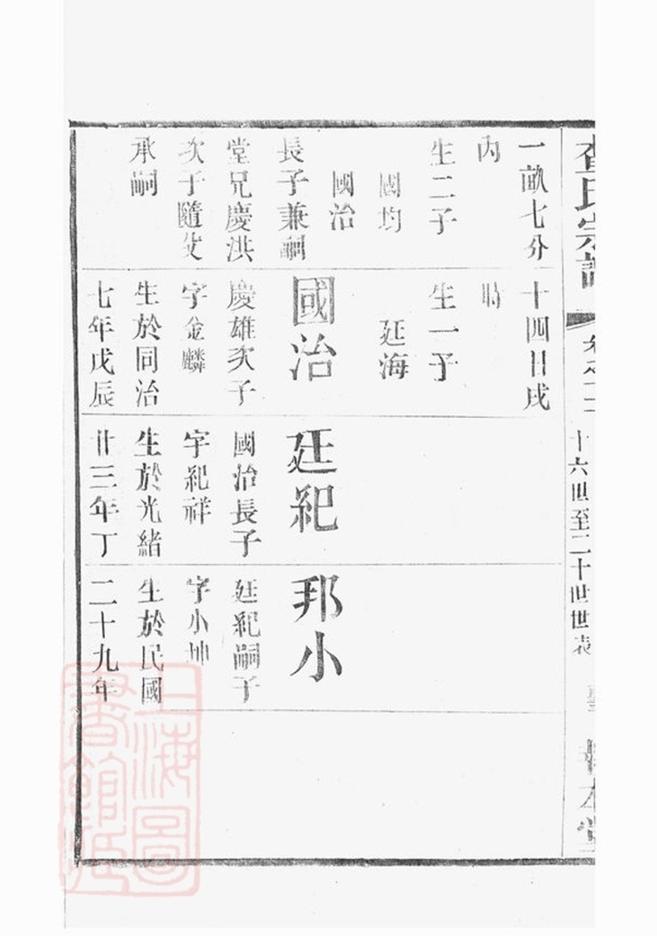 查氏宗譜
卷之二
十六世至二十世世表
一畝七分
內
生二子
國均
國治
長子兼嗣
堂兄慶洪
次子隨父
承嗣
十四日戌
時
生一子
廷海
國治
慶雄次子
字金麟
生於同治
七年戊辰
廷紀
國治長子
字紀祥
生於光緒
廿三年丁
邦小
廷紀嗣子
字小坤
生於民國
二十九年
上海圖
書館藏